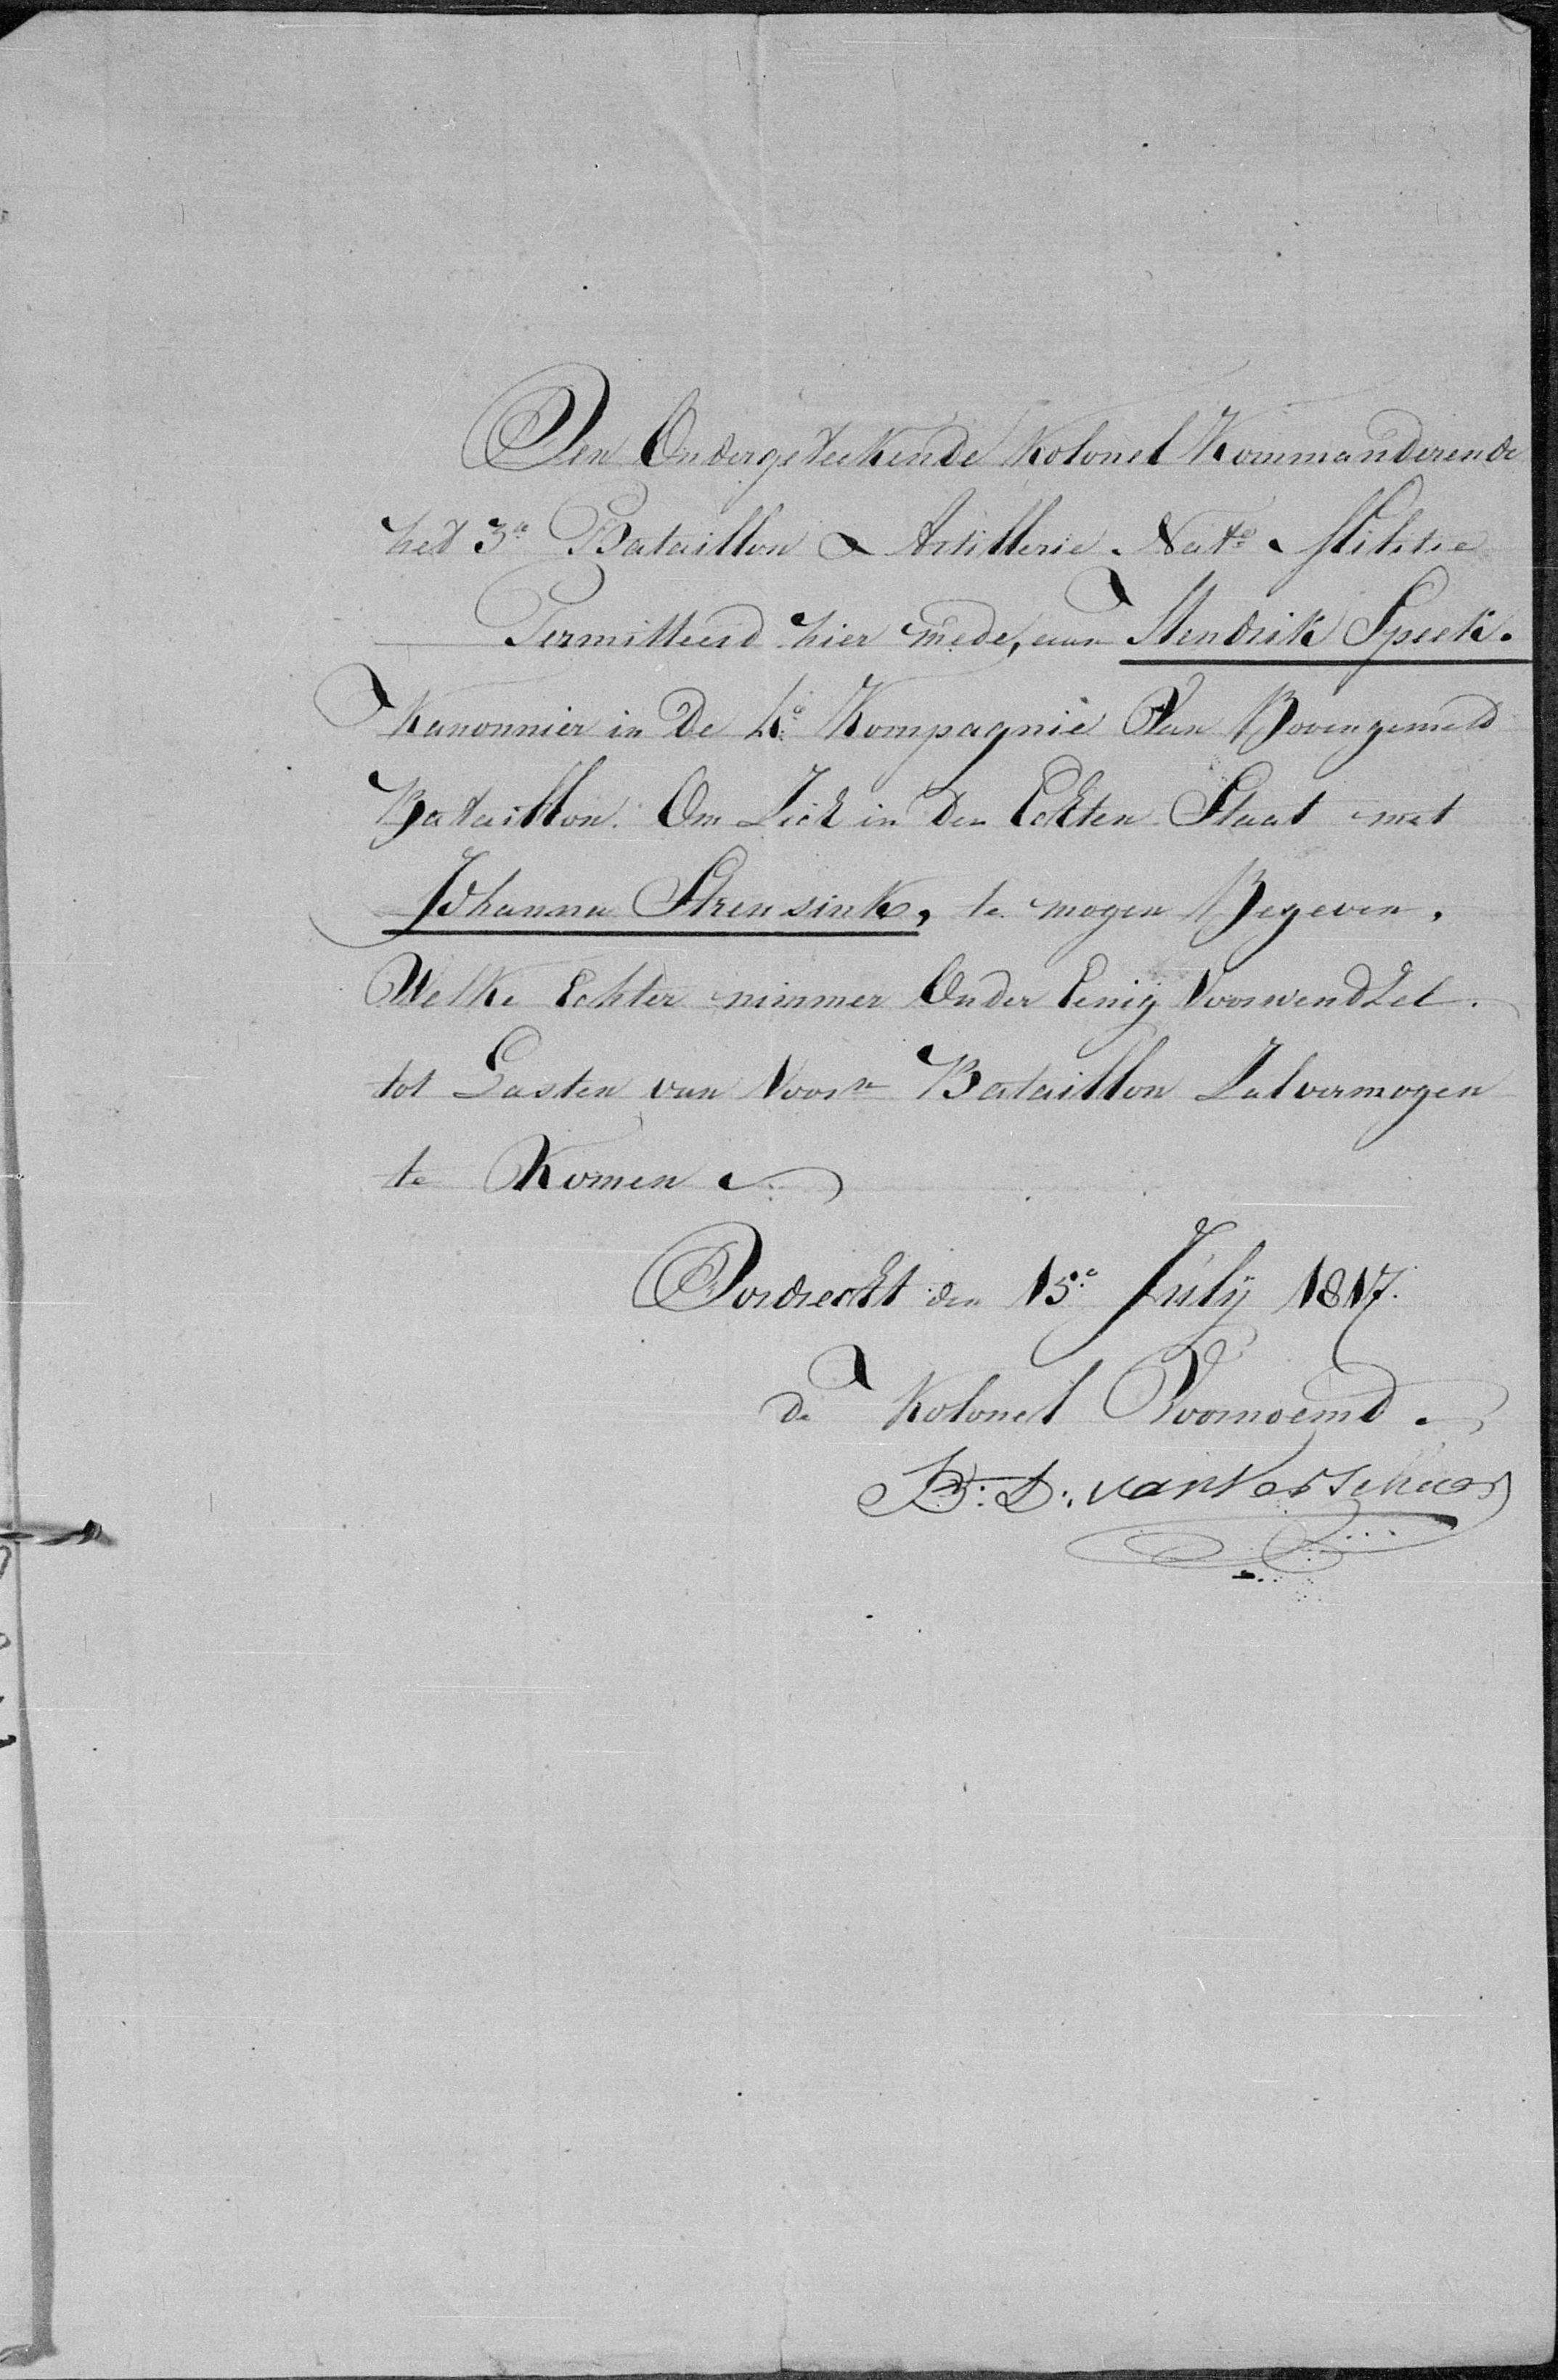 Den Ondergeteekende Kolonel Kommanderende
het 3e Bataillon Artillerie Nate Militie
Permitteerd hier mede, aan Hendrik Speek.
Kanonnier in de 4e Kompagnie Van Bovengemeld
Bataillon. Om Zich in den Echten Staat met
Johanna Strensink, te mogen Begeven,
Welke Echter nimmer Onder Eenig Voorwendzel.
tot Lasten van Voorn Bataillon Zal vermogen
te Komen
Dordrecht den 15e July 1817.
de Kolonel Voornoemd
B: D: van Verschuer